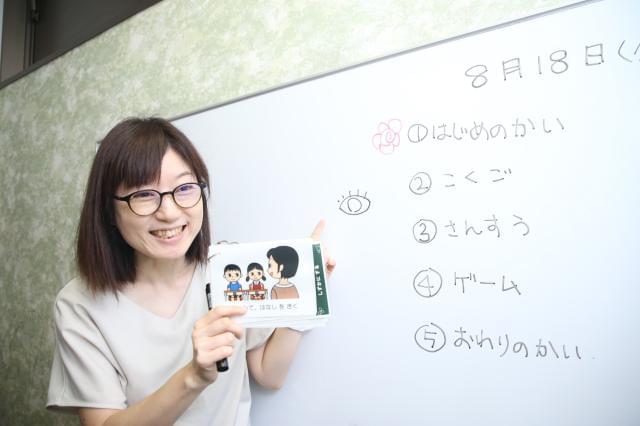 8月18日(
①はじめのかい
②こくご
③さんすう
④ゲーム
⑤おわりのかい
しずかにする
て、はなしをきく